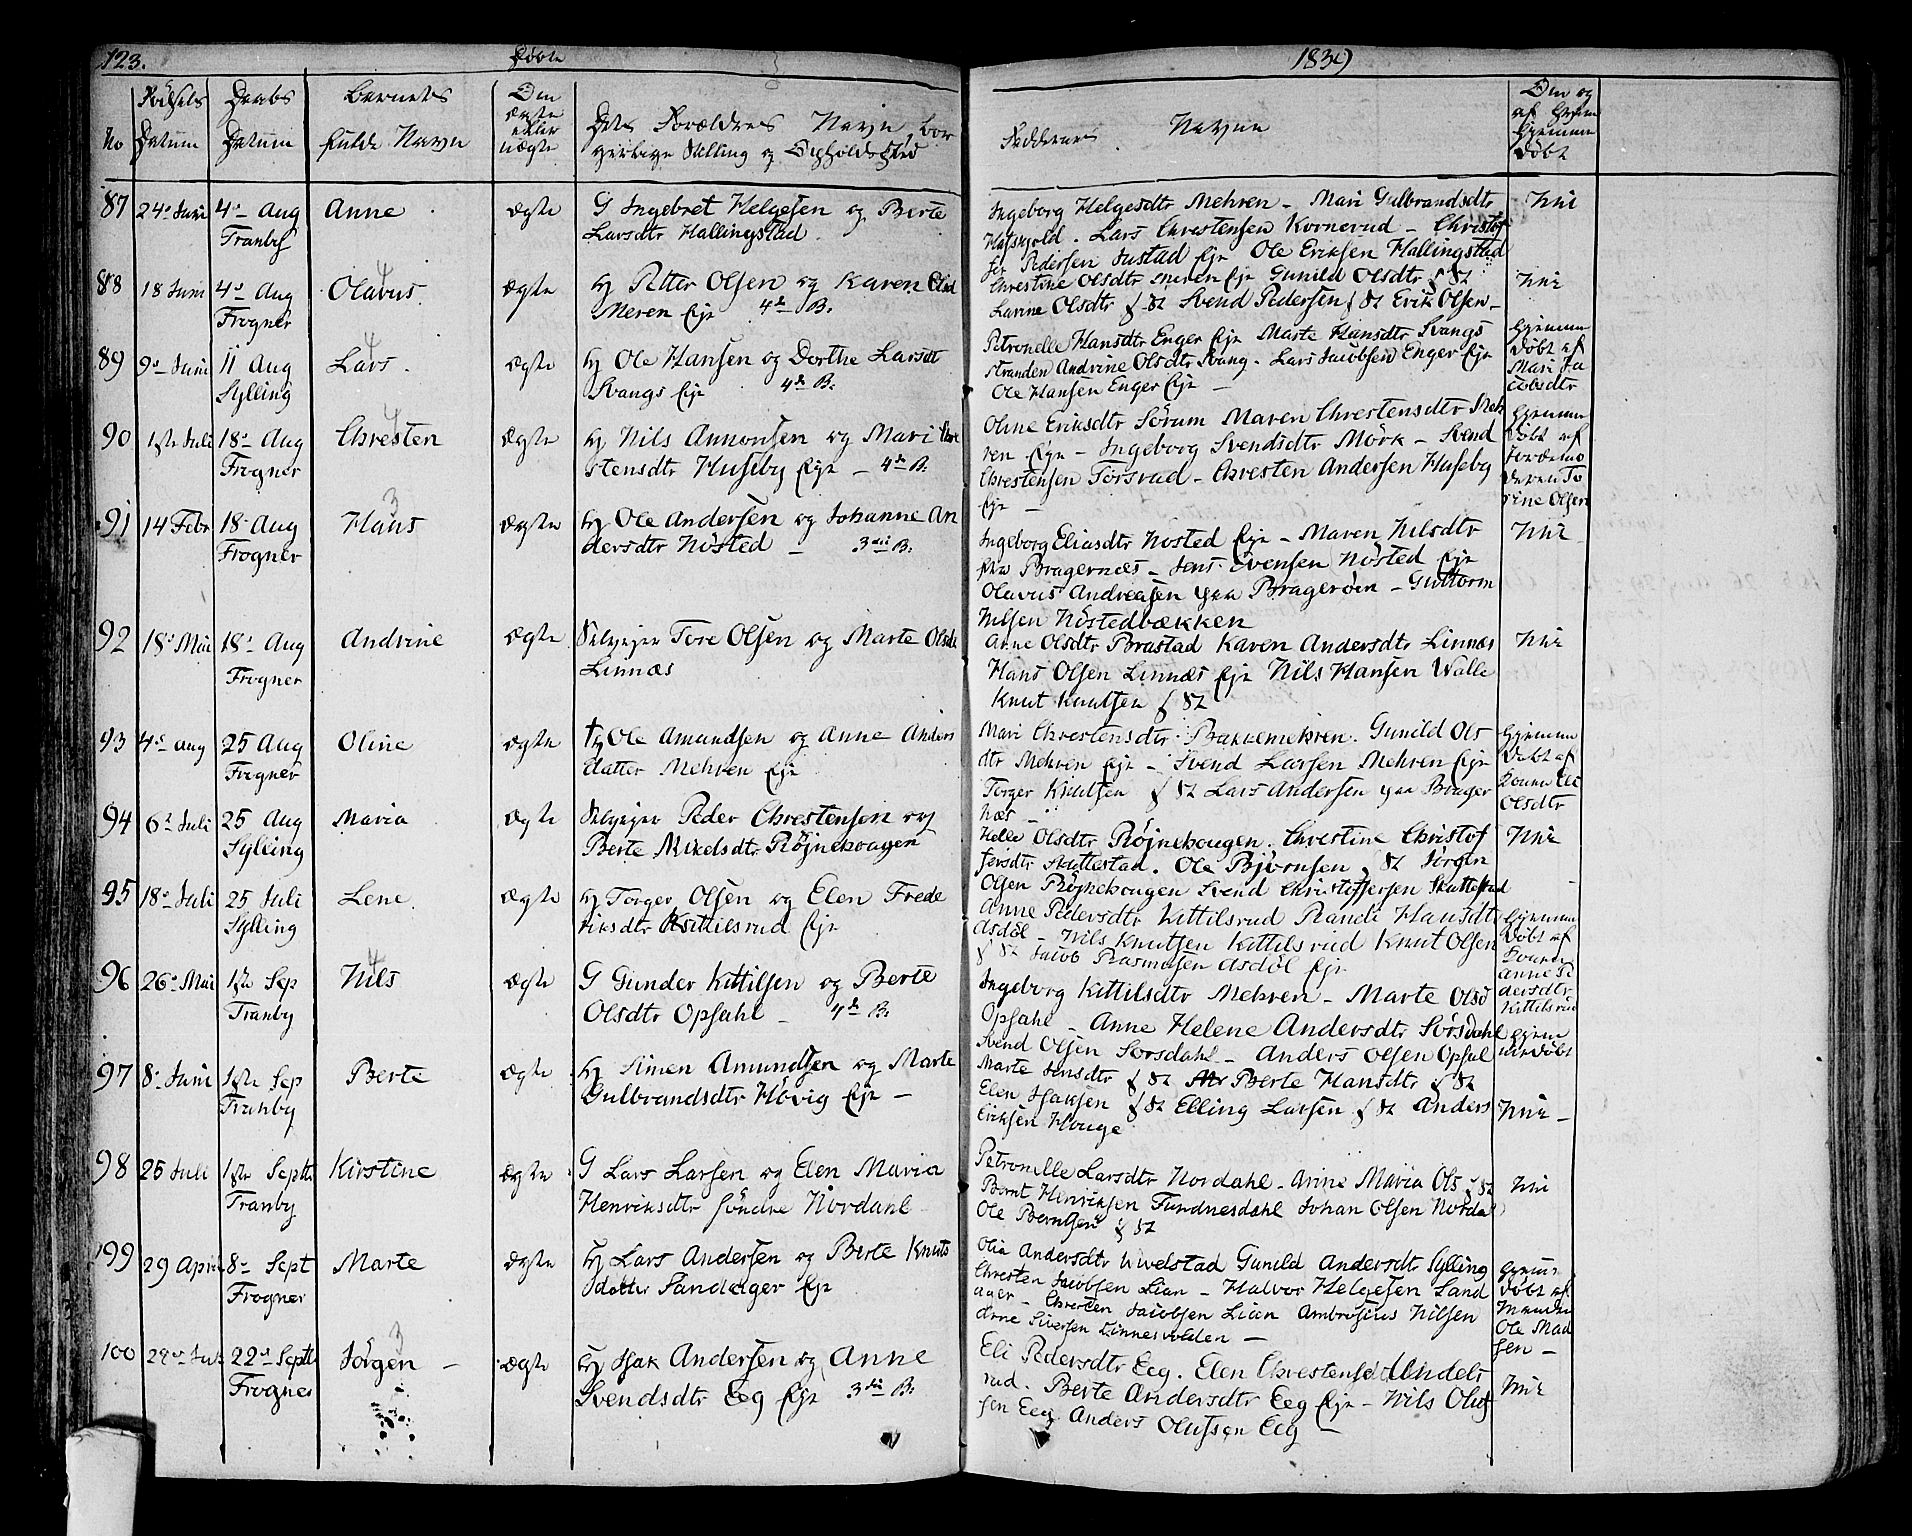 123. Døbte 1839
No Fødsels Datum
Daabs Datum
Barnets fulde Navn
Om ægte eller uægte
Dets Forældres Navn, bor
gerlige Stilling og Opholdssted
Faddernes Navne
87 24de Juni 4de Aug Anne ægte G Ingebret Helgesen og Berte
Tranby Larsdtr Hallingstad
Ingeborg Helgesdtr Mehren - Mari Gulbrandsdtr
Lars Chrestensen Kornerud - Christof
fer Pedersen Justad Eje Ole Eriksen Hallingstad
88 18 Juni 4de Aug Olavus 4 ægte Hj Petter Olsen og Karen Olsd
Frogner Meren Eje 4de B.
Chrestine Olsdtr Meren Eje Gunild Olsdtr
Larine Olsdtr Svend Pedersen Erik Olsen
89 9de Juni 11 Aug Lars 4 ægte Hj Ole Hansen og Dorthe Larsdt
Sylling Svangs Eje 4de B.
Petronelle Hansdtr Enger Eje Marte Hansdtr Svangs
stranden Andrine Olsdtr Svang - Lars Jacobsen Enger Eje
Ole Hansen Enger Eje -
Hjemme
døbt af
Mari Ja
cobsdtr
90 1ste Juli 18de Aug Chresten 4 ægte Hj Nils Amonsen og Mari Chre
Frogner stensdtr Huseby Eje - 4de B.
Oline Eriksdtr Sørum Maren Chrestensdtr Meh
ren Eje - Ingeborg Svendsdtr Mörk - Svend
Chrestensen Torsrud - Chresten Andersen Huseby
Eje -
Hjemme
døbt af
Jordemo
deren To
rine Olsen
91 14 Febr 18 Aug Hans 3 ægte Hj Ole Andersen og Johanne An
Frogner dersdtr Nösted - 3die B.
Ingeborg Eliasdtr Nösted Eje - Maren Nilsdtr
Bragernæs - Jens Evensen Nösted Eje
Olavus Andreasen paa Bragerøen - Guttorm
Nilsen Nöstedbækken
92 18de Mai 18de Aug Andrine ægte Selvejer Tore Olsen og Marte Olsdt
Frogner Linnæs
Anne Olsdtr Brastad Karen Andersdtr Linnæs
Hans Olsen Linnæs Eje Nils Hansen Walle
Knut Knutsen
93 4de Aug 25 Aug Oline ægte Hj Ole Amundsen og Anne Anders
Frogner datter Mehren Eje
Mari Chrestensdtr Bakkemehren. Gunild Ols
dtr Mehren Eje - Svend Larsen Mehren Eje
Torger Knutsen Lars Andersen paa Brager
næs -
Hjemme
døbt af
Olsdtr
94 6te Juli 25 Aug Maria ægte Selvejer Peder Chrestensen og
Sylling Berte Mikelsdtr Röjnehougen
Helle Olsdtr Röjnehougen. Chrestine Christof
fersdtr Skuttestad. Ole Björnsen Jörgen
Olsen Röjnehougen Svend Christoffersen Skuttestad
95 18de Juli 25 Juli Lene ægte Hj Torger Olsen og Elen Frede
Sylling riksdtr Kittilsrud Eje
Anne Pedersdtr Kittilsrud Randi Hansdtr
Asdöl - Nils Knutsen Kittilsrud Knut Olsen
Jacob Rasmusen Asdöl Eje
Hjemme
døbt af
Anne Pe
dersdtr
Kittilsrud
96 26de Mai 1ste Sep Nils 4 ægte G Gunder Kittilsen og Berte
Tranby Olsdtr Opsahl - 4de B.
Ingeborg Kittilsdtr Mehren - Marte Olsd
Opsahl - Anne Helene Andersdtr Sørsdahl
Svend Olsen Sorsdahl - Anders Olsen Opsal
Hjem
medøbt
97 8de Juni 1ste Sep Berte ægte Hj Simen Amundsen og Marte
Tranby Gulbrandsdtr Hövig Eje -
Marte Jensdtr Berte Hansdtr
Elen Elling Larsen Anders
Eriksen Houge
98 25 Juli 1ste Septb Kirstine ægte G Lars Larsen og Elen Maria
Tranby Henriksdtr Söndre Nordahl
Petronelle Larsdtr Nordahl - Anne Maria Ols
Bernt Henriksen Tundnesdahl Johan Olsen Nordal
Ole Berntsen
99 29 April 8de Sept Marte ægte Hj Lars Andersen og Berte Knuts
Frogner datter Sandager Eje
Olia Andersdtr Gunild Andersdtr Sylling
Chresten Jacobsen Lian - Halvor Helgesen Sand
ager - Chresten Jacobsen Lian Ambrosius Nilsen
Arne Siversen Linnesvolden -
døbt af
Ole Mad
sen -
100 22de Septb Jörgen 3 ægte Hj Isak Andersen og Anne
Frogner Svendsdtr Eeg Eje 3die B.
Eli Pedersdtr Eeg. Elen Chrestensd
rud. Berte Andersdtr Eeg Eje - Nils Oluf
sen Eeg Anders Olufsen Eeg -